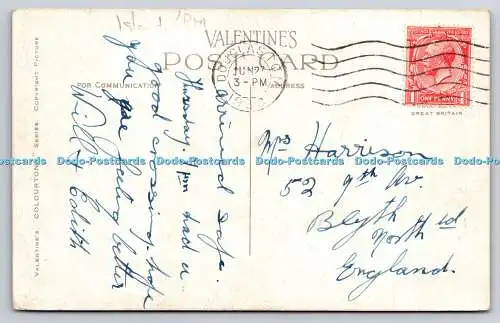 Island 7pm
VALENTINES
POST CARD
FOR COMMUNICATION
ADDRESS
DOUGLAS I.O.M.
JUN 27
3 - PM
ONE PENNY
GREAT BRITAIN
VALENTINE'S "COLOURTONE" SERIES. COPYRIGHT PICTURE
arrived safe
Thursday 7pm had a
good crossing. hope
you are feeling better
Will & Edith
Mrs Harrison
52 9th Av.
Blyth
North'd
England.
Dodo-Postcards Dodo-Postcards Dodo-Postcards Dodo-Postcards